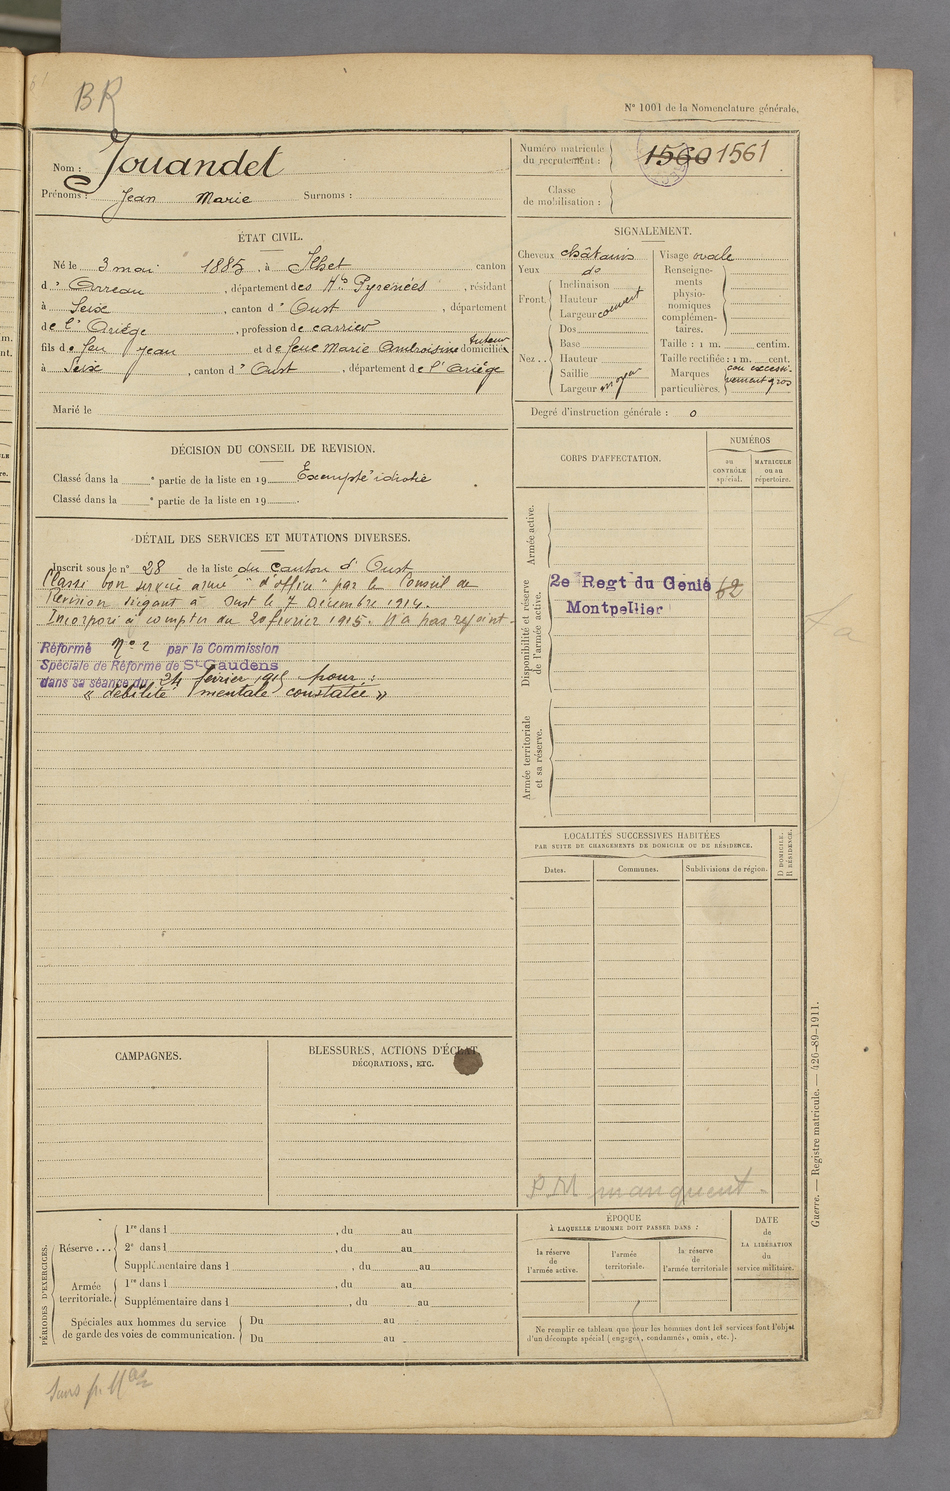 BR
N° 1001 de la Nomenclature générale.
Nom : Jouandet
Prénoms : Jean Marie Surnoms :
Numéro matricule du recrutement : 1560 1561
Classe de mobilisation :
ÉTAT CIVIL.
Né le 3 mai 1885, à Ilhet canton
d'Arreau, département des Htes Pyrénées, résidant
à Seix, canton d'Oust, département
de l'Ariége, profession de carrier
fils de feu Jean et de feue Marie Ambroisine tuteur domicilié
à Seix, canton d'Oust, département de l'Ariége
Marié le
SIGNALEMENT.
Cheveux châtains
Yeux do
Front. Inclinaison
Hauteur
Largeur couvert
Nez .. Dos
Base
Hauteur
Saillie
Largeur moyen
Visage ovale
Renseignements physionomiques complémentaires.
Taille : 1 m. centim.
Taille rectifiée : 1 m. cent.
Marques particulières. cou excessivement gros
Degré d'instruction générale : 0
DÉCISION DU CONSEIL DE REVISION.
Classé dans la e partie de la liste en 19 Exempté idiotie
Classé dans la e partie de la liste en 19 .
DÉTAIL DES SERVICES ET MUTATIONS DIVERSES.
Inscrit sous le n° 28 de la liste du canton d'Oust
Classé bon service armé "d'office" par le Conseil de
Révision siégant à Oust le 7 Décembre 1914.
Incorporé à compter du 20 février 1915. N'a pas rejoint.
Réformé N° 2 par la Commission
Spéciale de Réforme de St Gaudens
dans sa séance du 24 février 1915 pour :
« débilité mentale constatée »
CORPS D'AFFECTATION.
NUMÉROS
au CONTRÔLE spécial.
MATRICULE ou au répertoire.
Armée active.
Disponibilité et réserve de l'armée active.
2e Regt du Génie 62
Montpellier
Armée territoriale et sa réserve.
LOCALITÉS SUCCESSIVES HABITÉES
PAR SUITE DE CHANGEMENTS DE DOMICILE OU DE RÉSIDENCE.
Dates.
Communes.
Subdivisions de région.
D DOMICILE.
R RÉSIDENCE.
P.M manquent.
CAMPAGNES.
BLESSURES, ACTIONS D'ÉCLAT
DÉCORATIONS, ETC.
PÉRIODES D'EXERCICES.
Réserve ... 1re dans l , du au
2e dans l , du au
Supplémentaire dans l , du au
Armée territoriale. 1re dans l , du au
Supplémentaire dans l , du au
Spéciales aux hommes du service de garde des voies de communication. Du au
Du au
ÉPOQUE
À LAQUELLE L'HOMME DOIT PASSER DANS :
la réserve de l'armée active.
l'armée territoriale.
la réserve de l'armée territoriale
DATE de LA LIBÉRATION du service militaire.
Ne remplir ce tableau que pour les hommes dont les services font l'objet
d'un décompte spécial (engagés, condamnés, omis, etc.).
Guerre. — Registre matricule. — 426-89-1911.